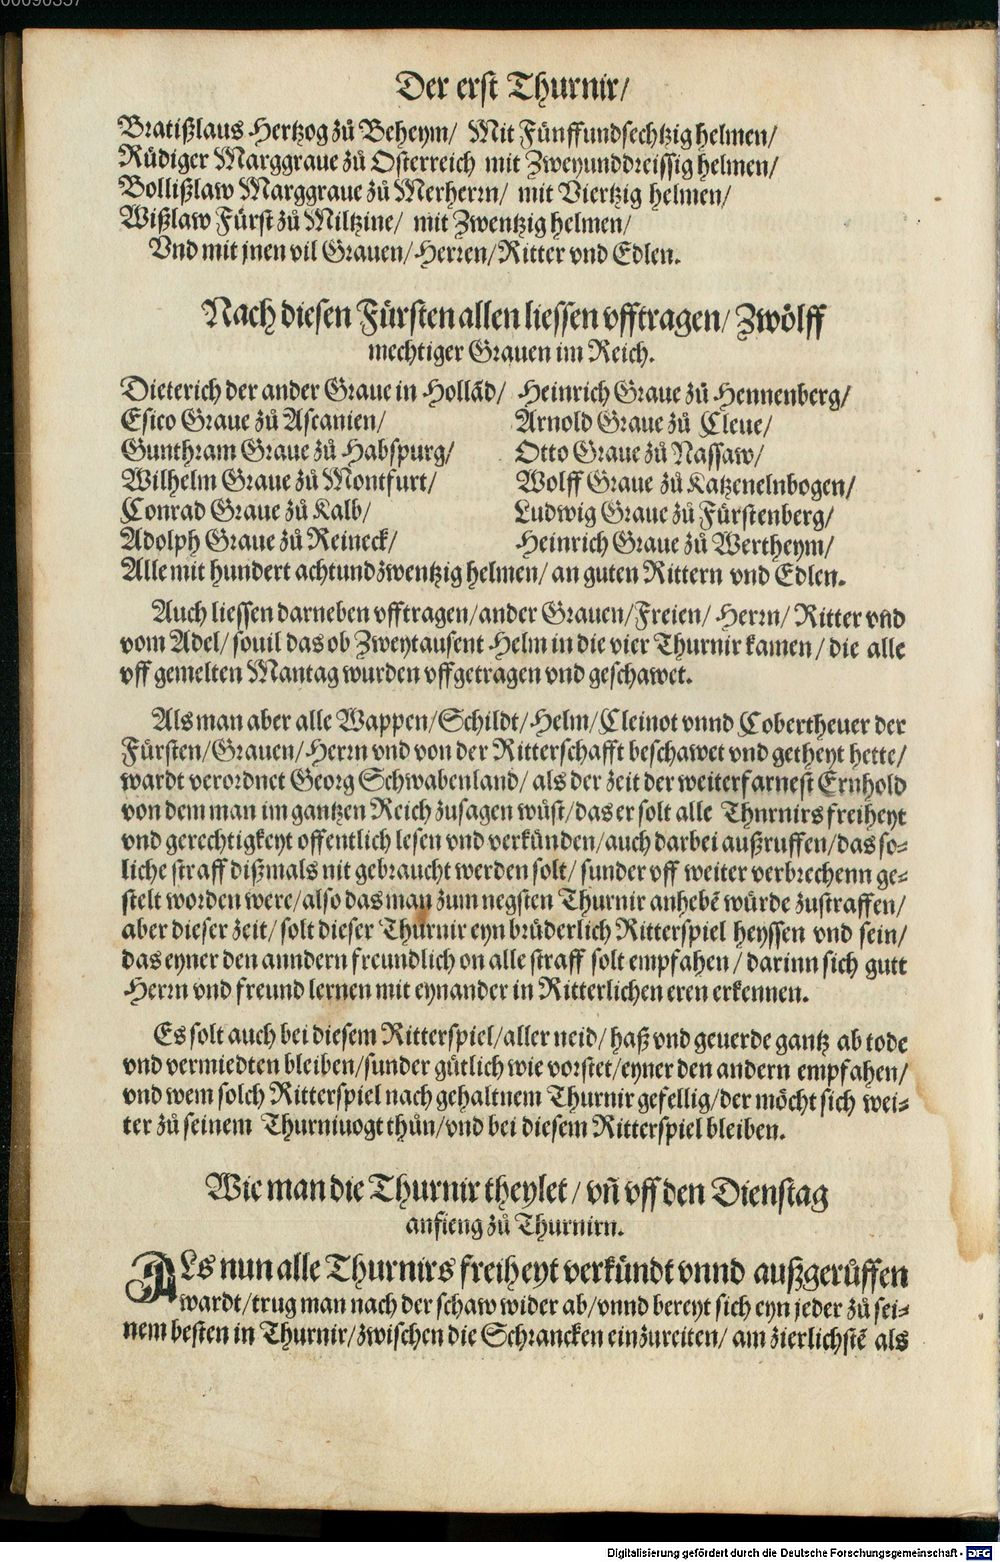 00090337
Der erst Thurnir/
Bratißlaus Hertzog zů Beheym/ Mit Fünffundsechtzig helmen/
Rüdiger Marggraue zů Osterreich mit Zweyunddreissig helmen/
Bollißlaw Marggraue zů Merherrn/ mit Viertzig helmen/
Wißlaw Fürst zů Miltzine/ mit Zwentzig helmen/
Vnd mit jnen vil Grauen/ Herren/ Ritter vnd Edlen.
Nach diesen Fürsten allen liessen vfftragen/ Zwölff
mechtiger Grauen im Reich.
Dieterich der ander Graue in Hollād/ Heinrich Graue zů Hennenberg/
Esico Graue zů Ascanien/ Arnold Graue zů Cleue/
Gunthram Graue zů Habspurg/ Otto Graue zů Nassaw/
Wilhelm Graue zů Montfurt/ Wolff Graue zů Katzenelnbogen/
Conrad Graue zů Kalb/ Ludwig Graue zů Fürstenberg/
Adolph Graue zů Reineck/ Heinrich Graue zů Wertheym/
Alle mit hundert achtundzwentzig helmen/ an guten Rittern vnd Edlen.
Auch liessen darneben vfftragen/ ander Grauen/ Freien/ Herrn/ Ritter vnd
vom Adel/ souil das ob Zweytausent Helm in die vier Thurnir kamen/ die alle
vff gemelten Mantag wurden vffgetragen vnd geschawet.
Als man aber alle Wappen/ Schildt/ Helm/ Cleinot vnnd Cobertheuer der
Fürsten/ Grauen/ Herrn vnd von der Ritterschafft beschawet vnd getheyt hette/
wardt verordnet Georg Schwabenland/ als der zeit der weiterfarnest Ernhold
von dem man im gantzen Reich zusagen wüst/ das er solt alle Thurnirs freiheyt
vnd gerechtigkeyt offentlich lesen vnd verkünden/ auch darbei außruffen/ das so-
liche straff dißmals nit gebraucht werden solt/ sunder vff weiter verbrechenn ge-
stelt worden were/ also das man zum negsten Thurnir anhebē würde zustraffen/
aber dieser zeit/ solt dieser Thurnir eyn brüderlich Ritterspiel heyssen vnd sein/
das eyner den anndern freundlich on alle straff solt empfahen/ darinn sich gutt
Herrn vnd freund lernen mit eynander in Ritterlichen eren erkennen.
Es solt auch bei diesem Ritterspiel/ aller neid/ haß vnd geuerde gantz ab tode
vnd vermiedten bleiben/ sunder gütlich wie vorstet/ eyner den andern empfahen/
vnd wem solch Ritterspiel nach gehaltnem Thurnir gefellig/ der möcht sich wei-
ter zů seinem Thurniuogt thün/ vnd bei diesem Ritterspiel bleiben.
Wie man die Thurnir theylet/ vn̄ vff den Dienstag
anfieng zů Thurnirn.
ALs nun alle Thurnirs freiheyt verkündt vnnd außgerůffen
wardt/ trug man nach der schaw wider ab/ vnnd bereyt sich eyn jeder zů sei-
nem besten in Thurnir/ zwischen die Schrancken einzureiten/ am zierlichstē als
Digitalisierung gefördert durch die Deutsche Forschungsgemeinschaft - DFG